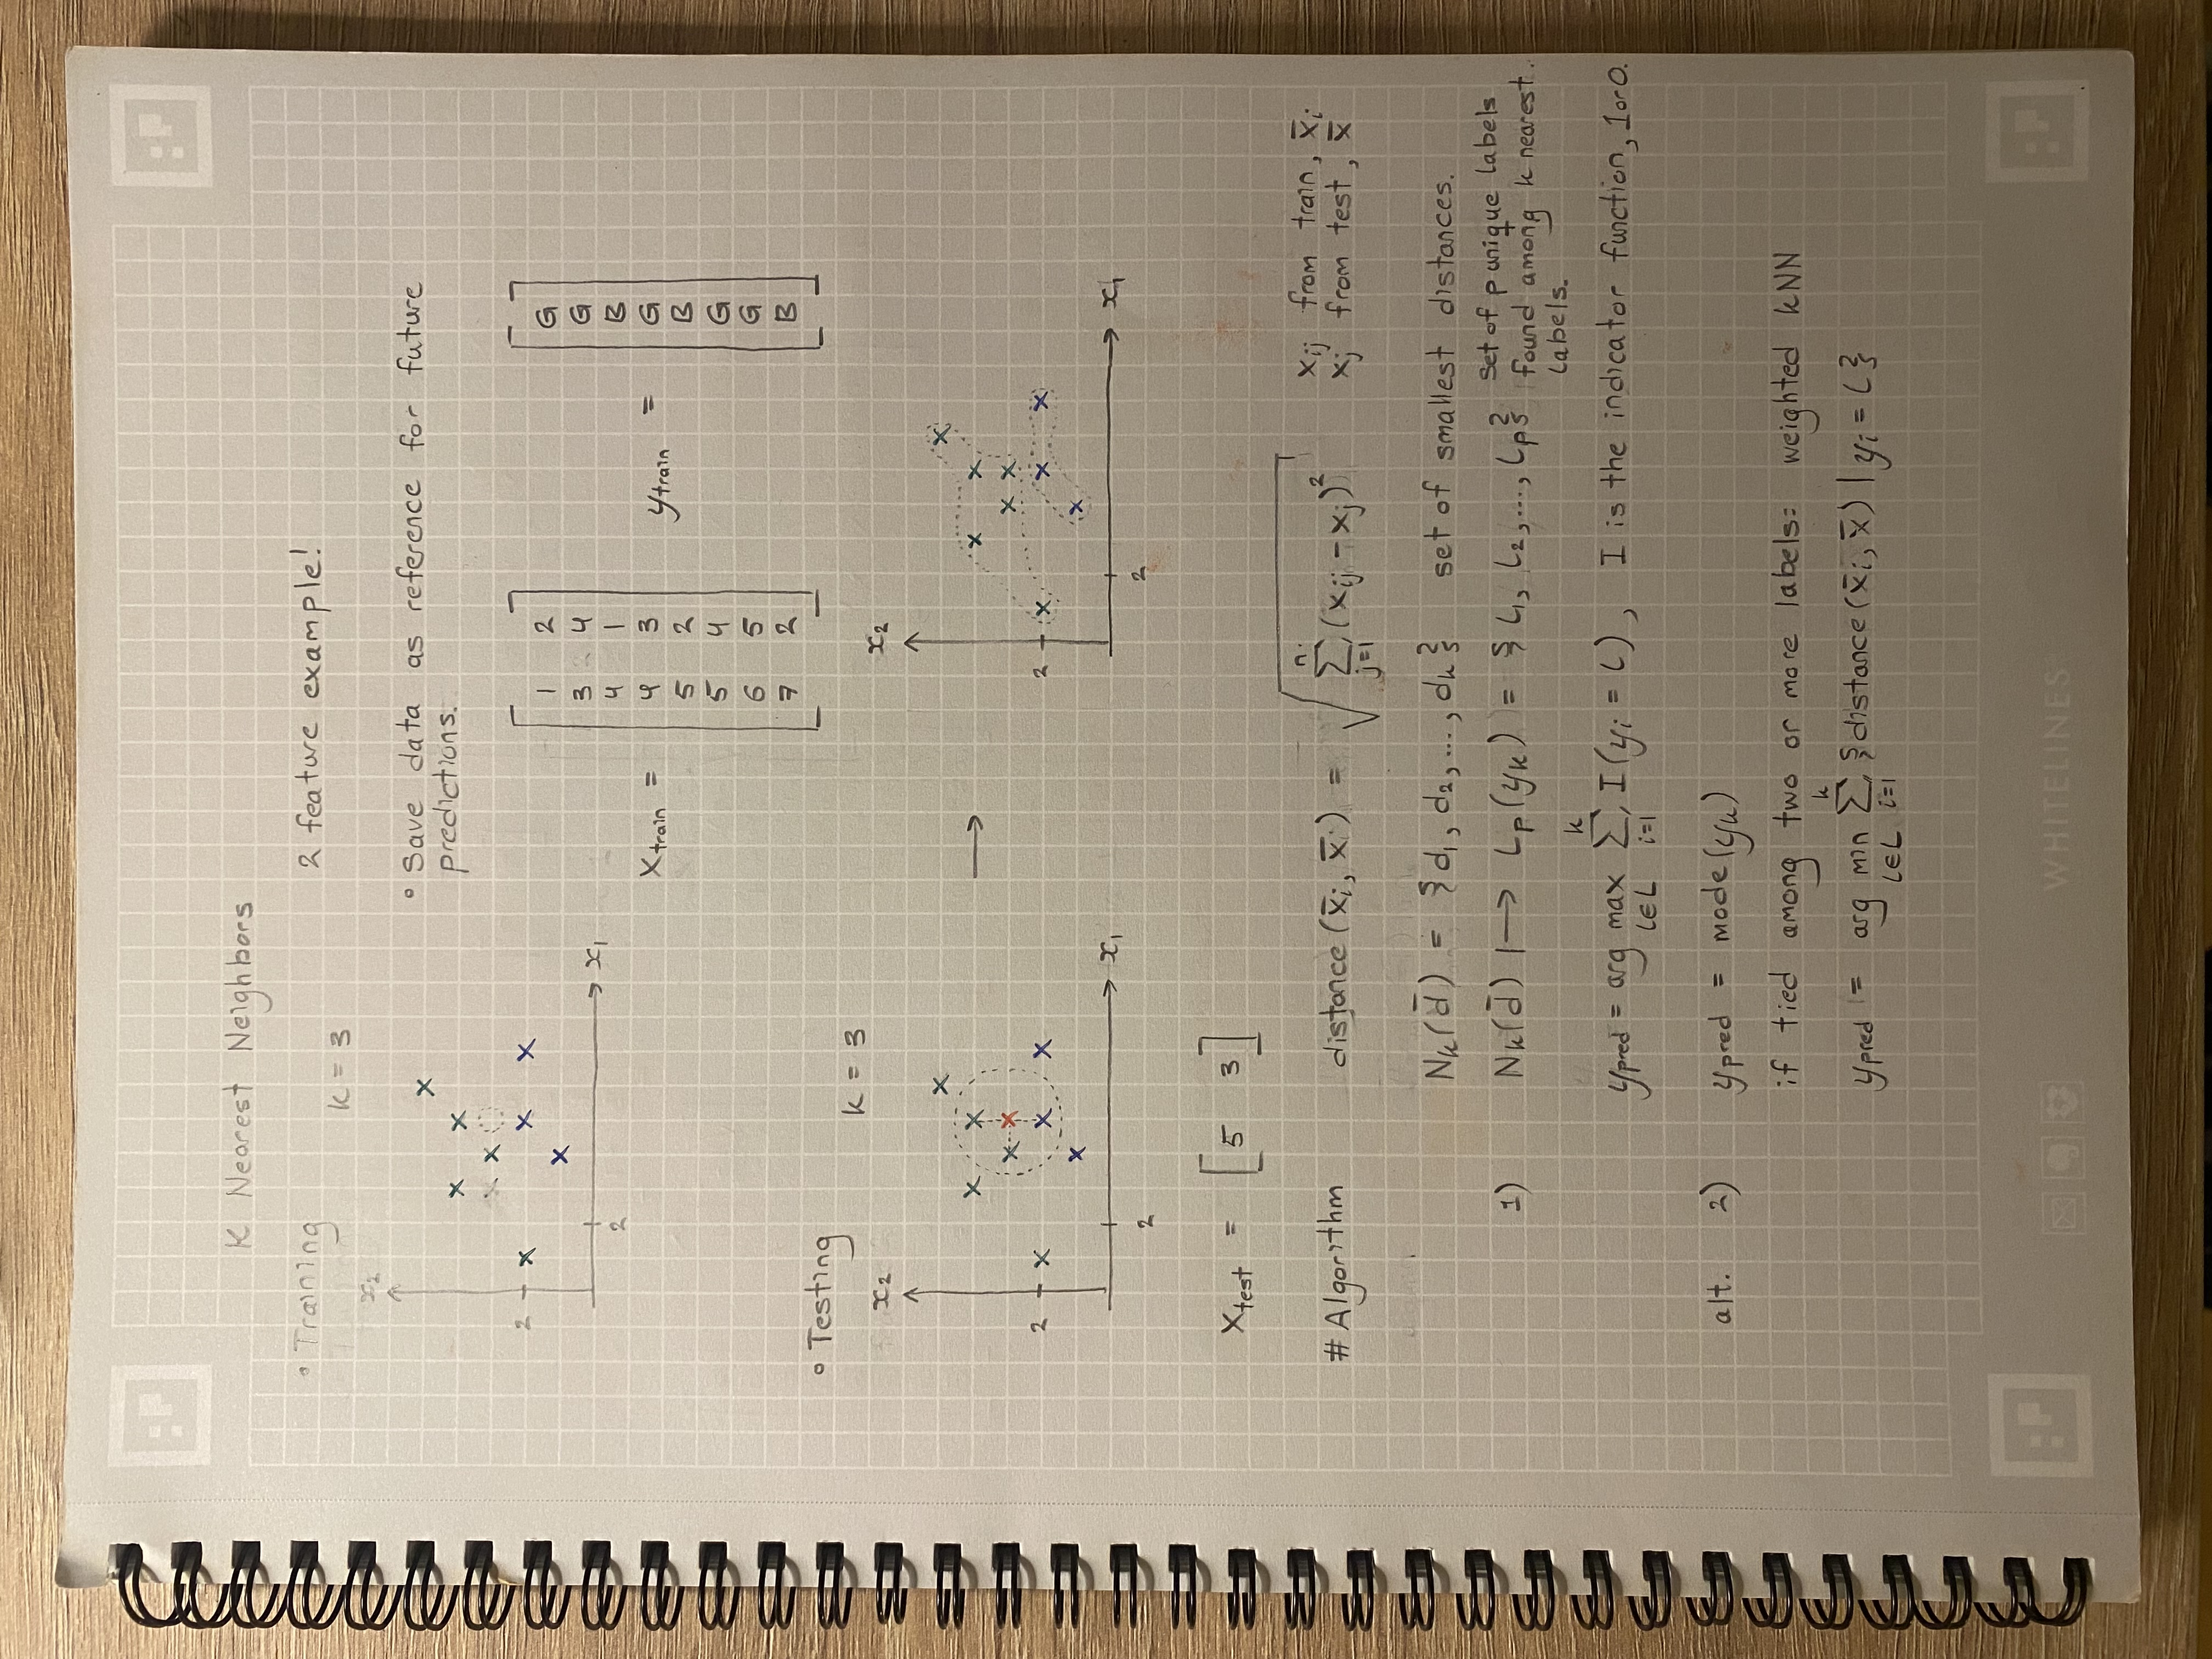 K Nearest Neighbors
• Training
2 feature example!
k = 3
x₂
• Save data as reference for future
predictions.
2
2
x₁
X_train =
1 2
3 4
4 1
4 3
5 2
5 4
6 5
7 2
y_train =
G
G
B
G
B
G
G
B
• Testing
k = 3
x₂
2
2
x₁
→
x₂
2
2
x₁
X_test = [5 3]
# Algorithm distance(x̄ᵢ, x̄) = √(∑_{j=1}^{n} (x_ij - x_j)²)
x_ij from train, x̄ᵢ
x_j from test, x̄
N_k(d̄) = {d₁, d₂, ..., d_k} set of smallest distances.
1) N_k(d̄) ↦ L_p(y_k) = {L₁, L₂, ..., L_p}
set of p unique labels
found among k nearest
labels.
y_pred = arg max_{l∈L} ∑_{i=1}^{k} I(yᵢ = l), I is the indicator function, 1 or 0.
alt. 2) y_pred = mode(y_k)
if tied among two or more labels: weighted kNN
y_pred = arg min_{l∈L} ∑_{i=1}^{k} {distance(x̄ᵢ, x̄) | yᵢ = l}
WHITELINES